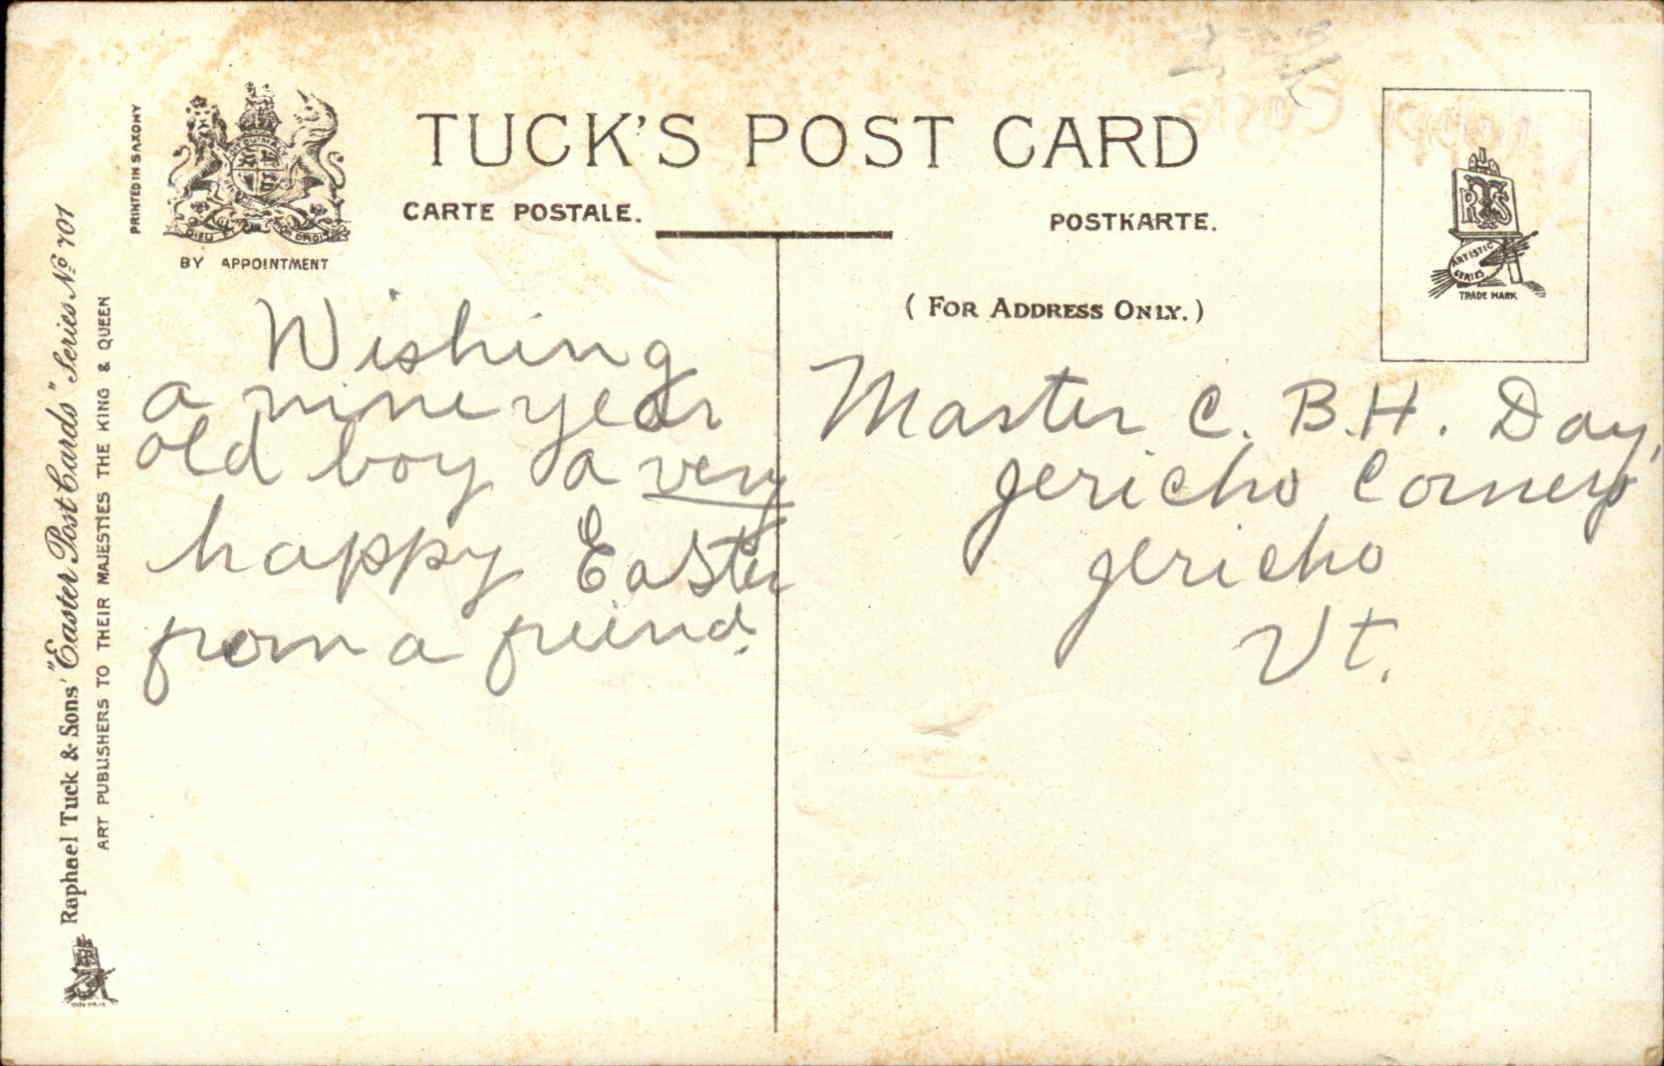 TUCK'S POST CARD
CARTE POSTALE.
POSTKARTE.
PRINTED IN SAXONY
DIEU ET MON DROIT
BY APPOINTMENT
(FOR ADDRESS ONLY.)
RTS
ARTISTIC
SERIES
TRADE MARK
Raphael Tuck & Sons' "Easter Post Cards" Series No 701
ART PUBLISHERS TO THEIR MAJESTIES THE KING & QUEEN
Wishing
a nine year
old boy a very
happy Easter
from a friend.
Master C. B. H. Day,
Jericho Corners
Jericho
Vt.